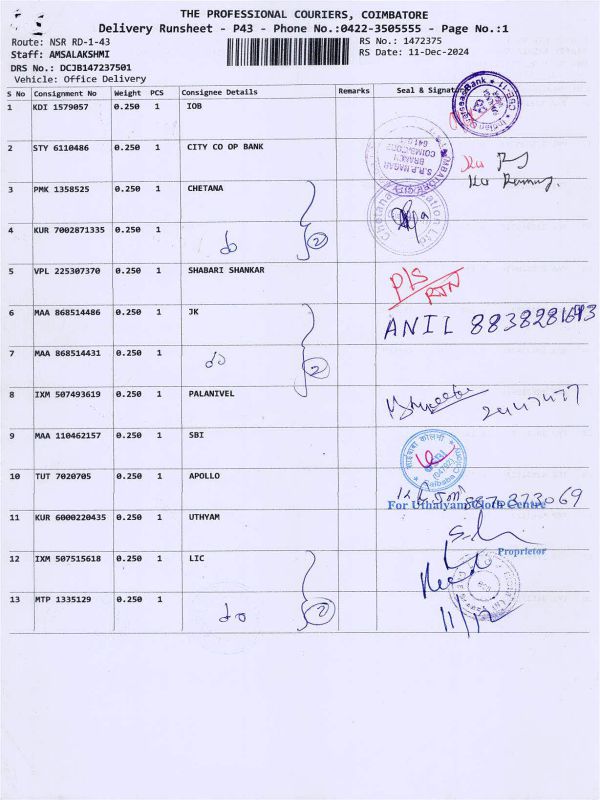 THE PROFESSIONAL COURIERS, COIMBATORE
Delivery Runsheet - P43 - Phone No.:0422-3505555 - Page No.:1
Route: NSR RD-1-43
RS No.: 1472375
Staff: AMSALAKSHMI
RS Date: 11-Dec-2024
DRS No.: DCJB147237501
Vehicle: Office Delivery
S No Consignment No Weight PCS Consignee Details Remarks Seal & Signature
1 KDI 1579057 0.250 1 IOB
2 STY 6110486 0.250 1 CITY CO OP BANK
3 PMK 1358525 0.250 1 CHETANA
4 KUR 7002871335 0.250 1 do 2
5 VPL 225307370 0.250 1 SHABARI SHANKAR
P/S
6 MAA 868514486 0.250 1 JK
ANIL
7 MAA 868514431 0.250 1 do 2
8 IXM 507493619 0.250 1 PALANIVEL
9 MAA 110462157 0.250 1 SBI
10 TUT 7020705 0.250 1 APOLLO
For Uthaiyam Cloth Centre
11 KUR 6000220435 0.250 1 UTHYAM
Proprietor
12 IXM 507515618 0.250 1 LIC
13 MTP 1335129 0.250 1 do 2
11/12